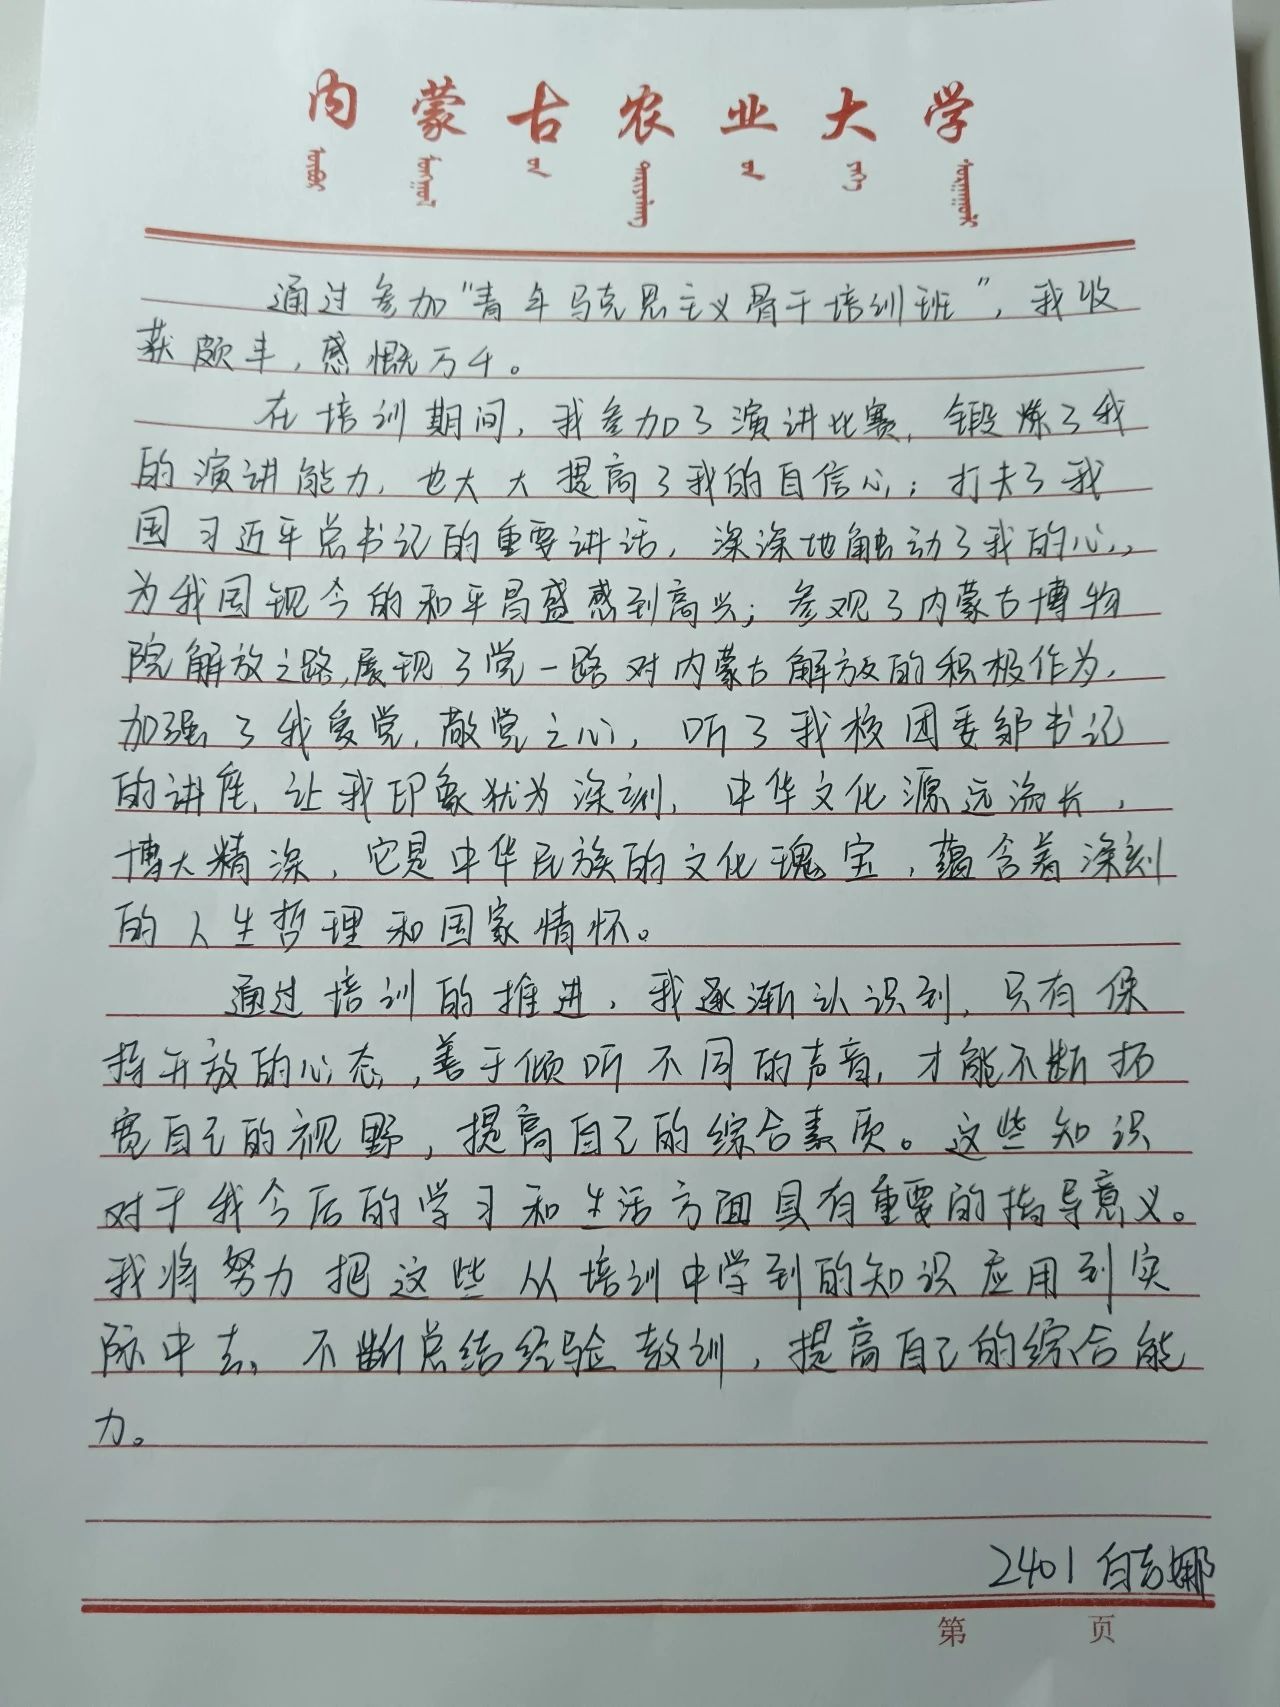 内蒙古农业大学
通过参加“青年马克思主义骨干培训班”，我收
获颇丰，感慨万千。
在培训期间，我参加了演讲比赛，锻炼了我
的演讲能力，也大大提高了我的自信心；打夫了我
国习近平总书记的重要讲话，深深地触动了我的心，
为我国现今的和平昌盛感到高兴；参观了内蒙古博物
院解放之路，展现了党一路对内蒙古解放的积极作为，
加强了我爱党，敬党之心，听了我校团委邹书记
的讲座，让我印象犹为深刻，中华文化源远流长，
博大精深，它是中华民族的文化瑰宝，蕴含着深刻
的人生哲理和国家情怀。
通过培训的推进，我逐渐认识到，只有保
持开放的心态，善于倾听不同的声音，才能不断拓
宽自己的视野，提高自己的综合素质。这些知识
对于我今后的学习和生活方面具有重要的指导意义。
我将努力把这些从培训中学到的知识应用到实
际中去，不断总结经验教训，提高自己的综合能
力。
2401 白志娜
第 页